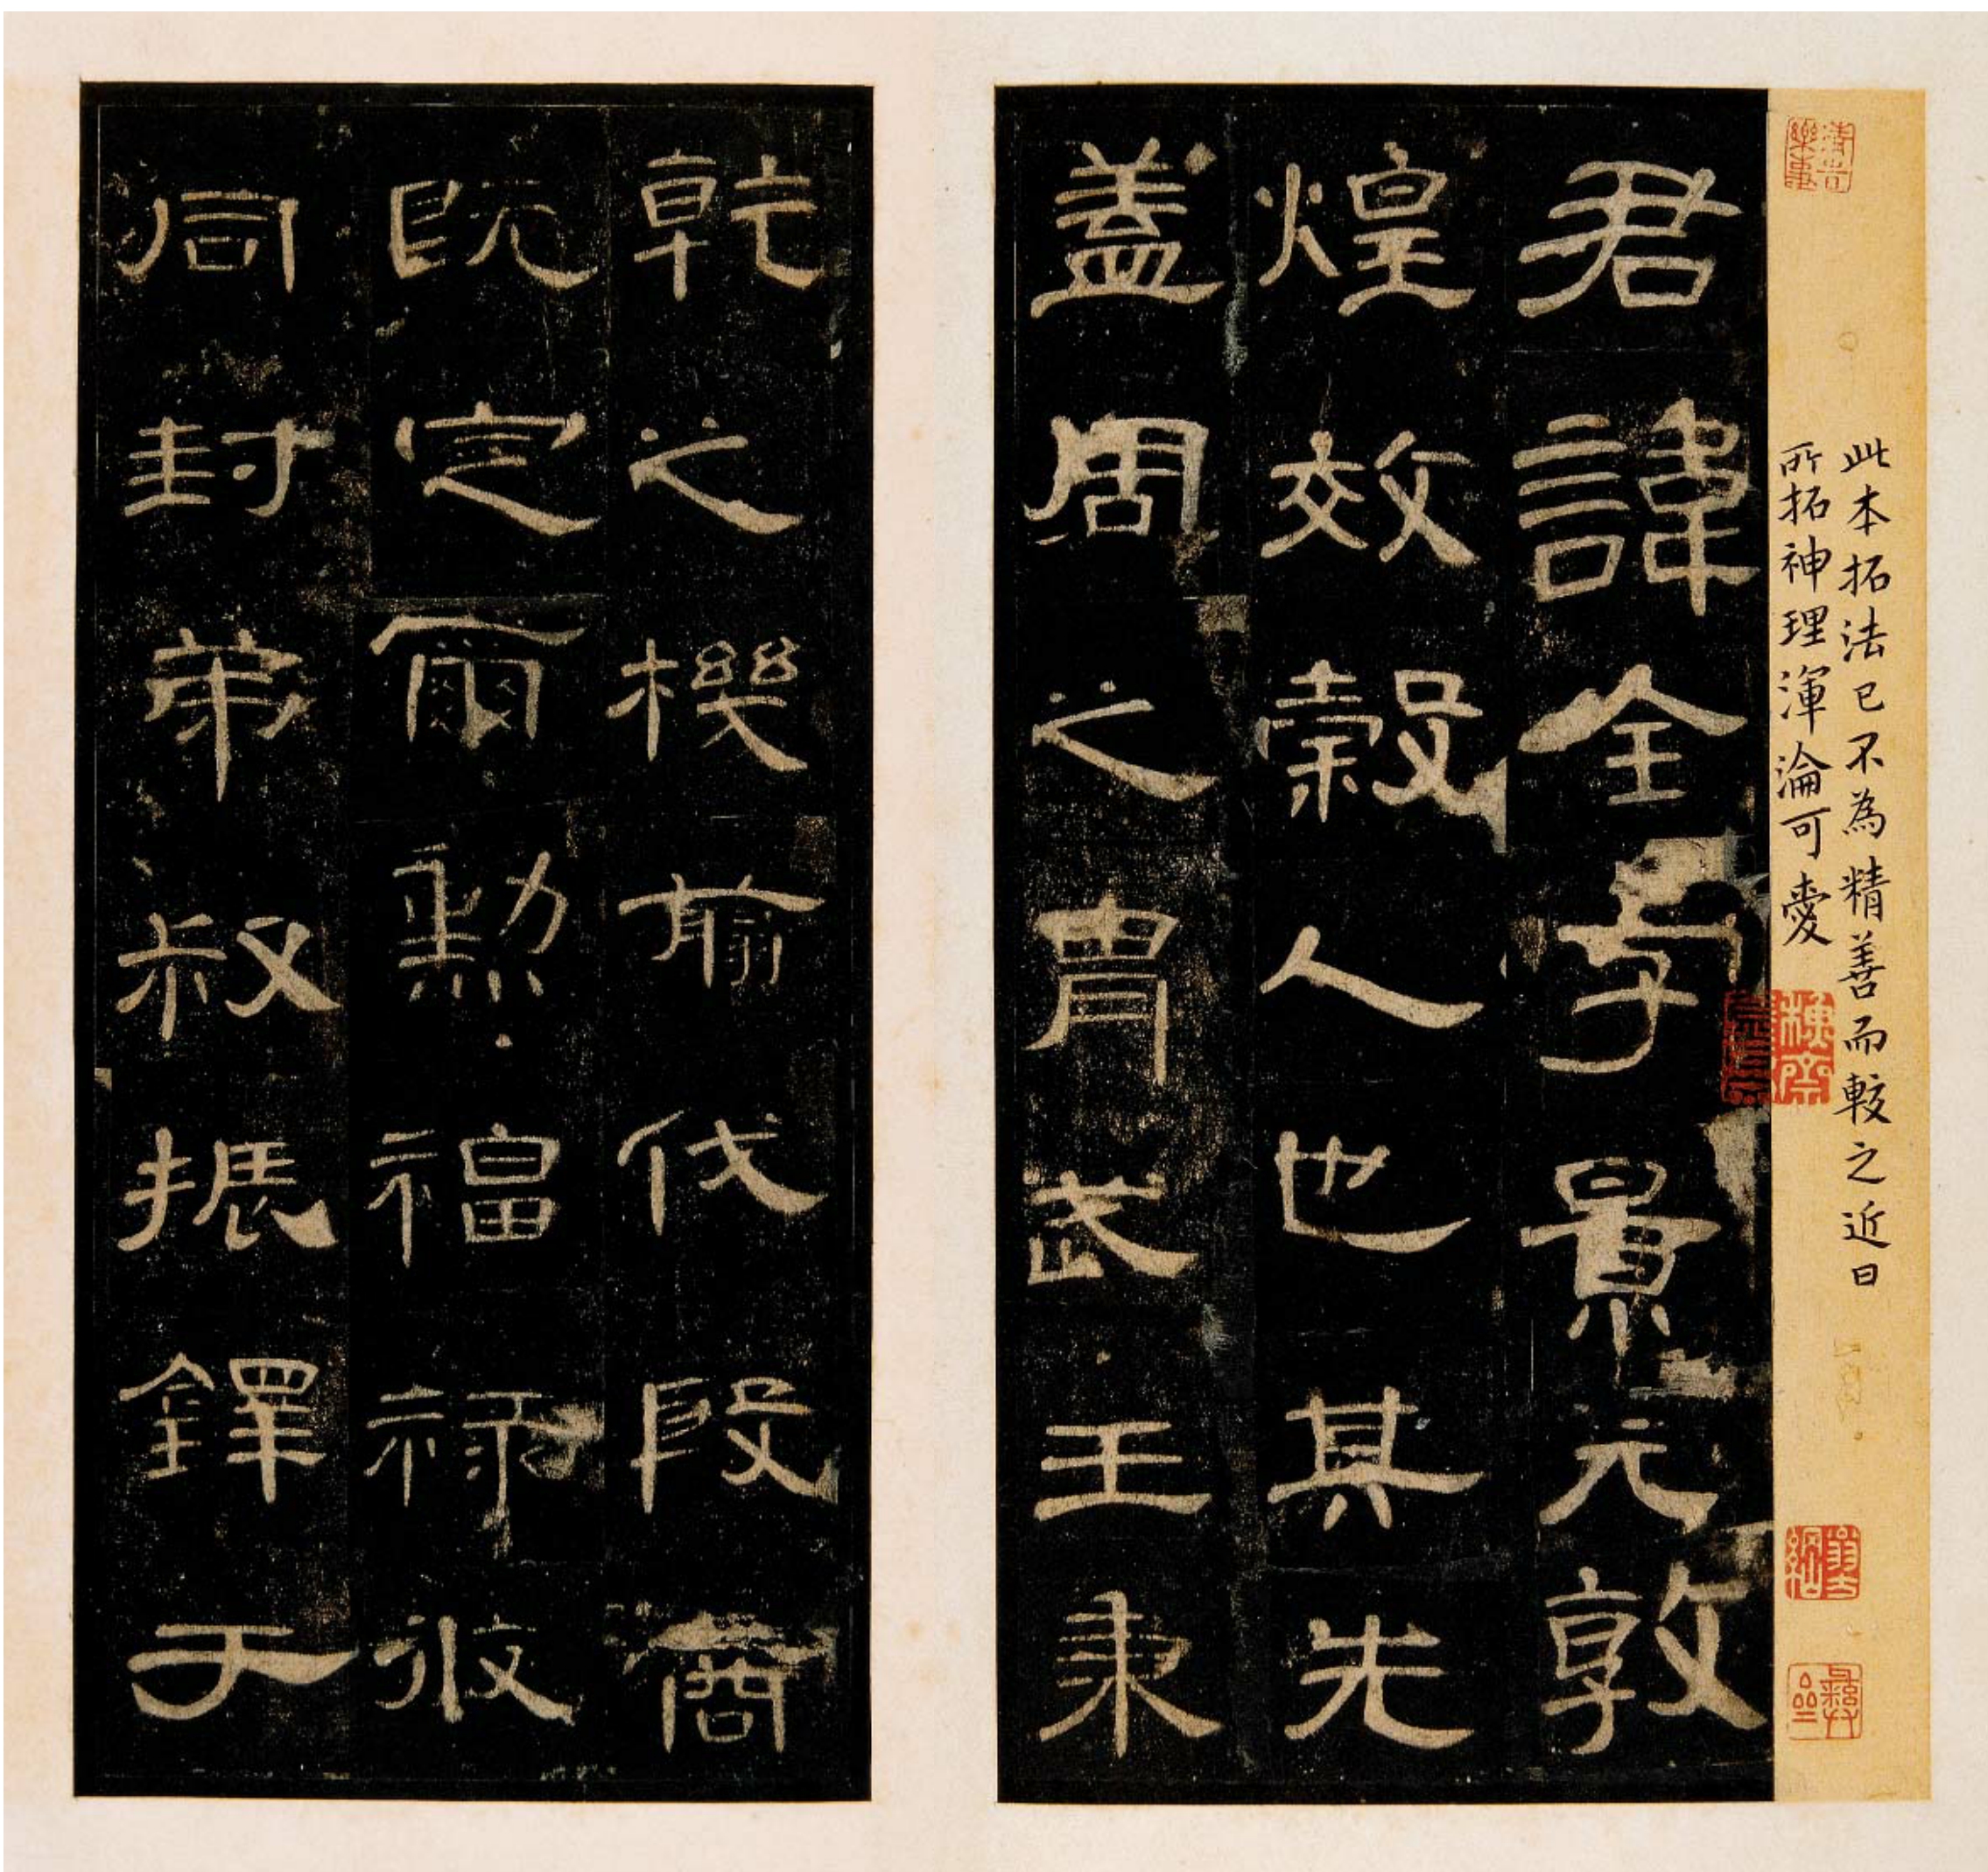 此本拓法已不為精善而較之近日
所拓神理渾淪可愛
君諱全字景元敦
煌效穀人也其先
蓋周之胄武王秉
乾之機翦伐殷商
既定爾勳福祿攸
同封弟叔振鐸于